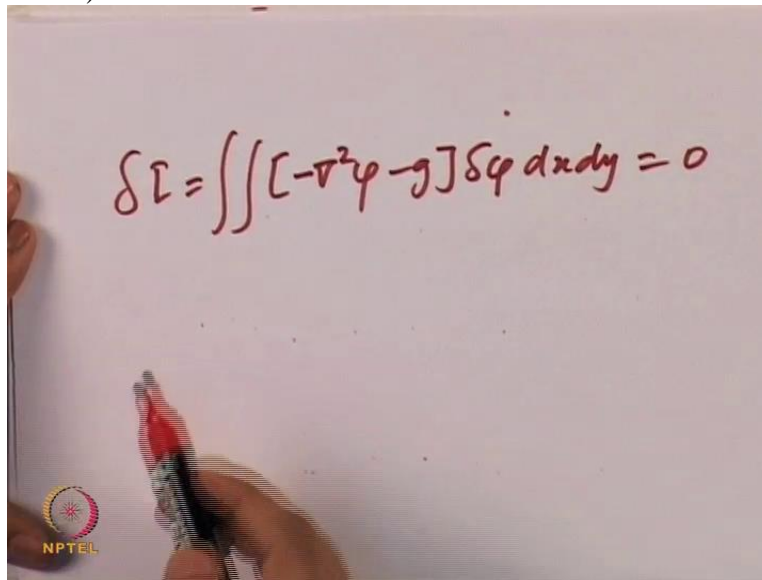 δI = ∬ [-∇²φ - g] δφ dx dy = 0
NPTEL